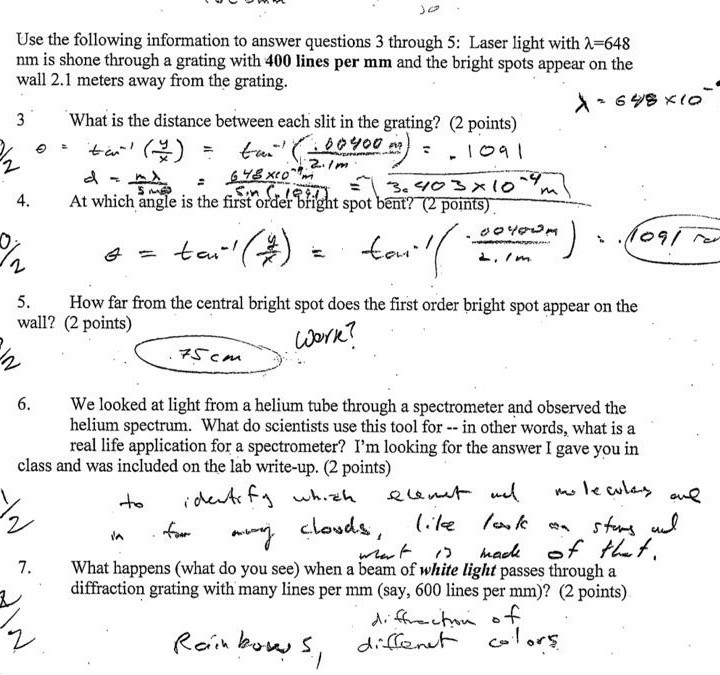 Use the following information to answer questions 3 through 5: Laser light with λ=648
nm is shone through a grating with 400 lines per mm and the bright spots appear on the
wall 2.1 meters away from the grating.
λ = 648 x10
3 What is the distance between each slit in the grating? (2 points)
θ = tan⁻¹ (y/x) = tan⁻¹ (.00400 m/2.1m) = .1091
d = mλ/sinθ = 648 x10⁻⁹m/sin(.1091) = 3.403 x 10⁻⁴ m
4. At which angle is the first order bright spot bent? (2 points)
θ = tan⁻¹ (y/x) = tan⁻¹ (.00400m/2.1m) = .1091
5. How far from the central bright spot does the first order bright spot appear on the
wall? (2 points)
Work?
.75 cm
6. We looked at light from a helium tube through a spectrometer and observed the
helium spectrum. What do scientists use this tool for -- in other words, what is a
real life application for a spectrometer? I'm looking for the answer I gave you in
class and was included on the lab write-up. (2 points)
1/2
to identify which elemet and moleculas are
in far away clouds, like look on stars and
what is made of that.
7. What happens (what do you see) when a beam of white light passes through a
diffraction grating with many lines per mm (say, 600 lines per mm)? (2 points)
2/2
diffraction of
Rainbows, differet colors